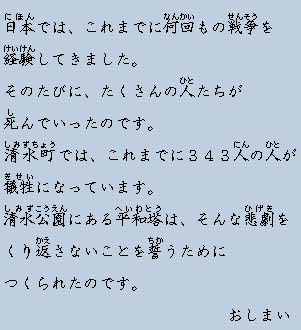 日本では、これまでに何回もの戦争を
経験してきました。
そのたびに、たくさんの人たちが
死んでいったのです。
清水町では、これまでに３４３人の人が
犠牲になっています。
清水公園にある平和塔は、そんな悲劇を
くり返さないことを誓うために
つくられたのです。
おしまい